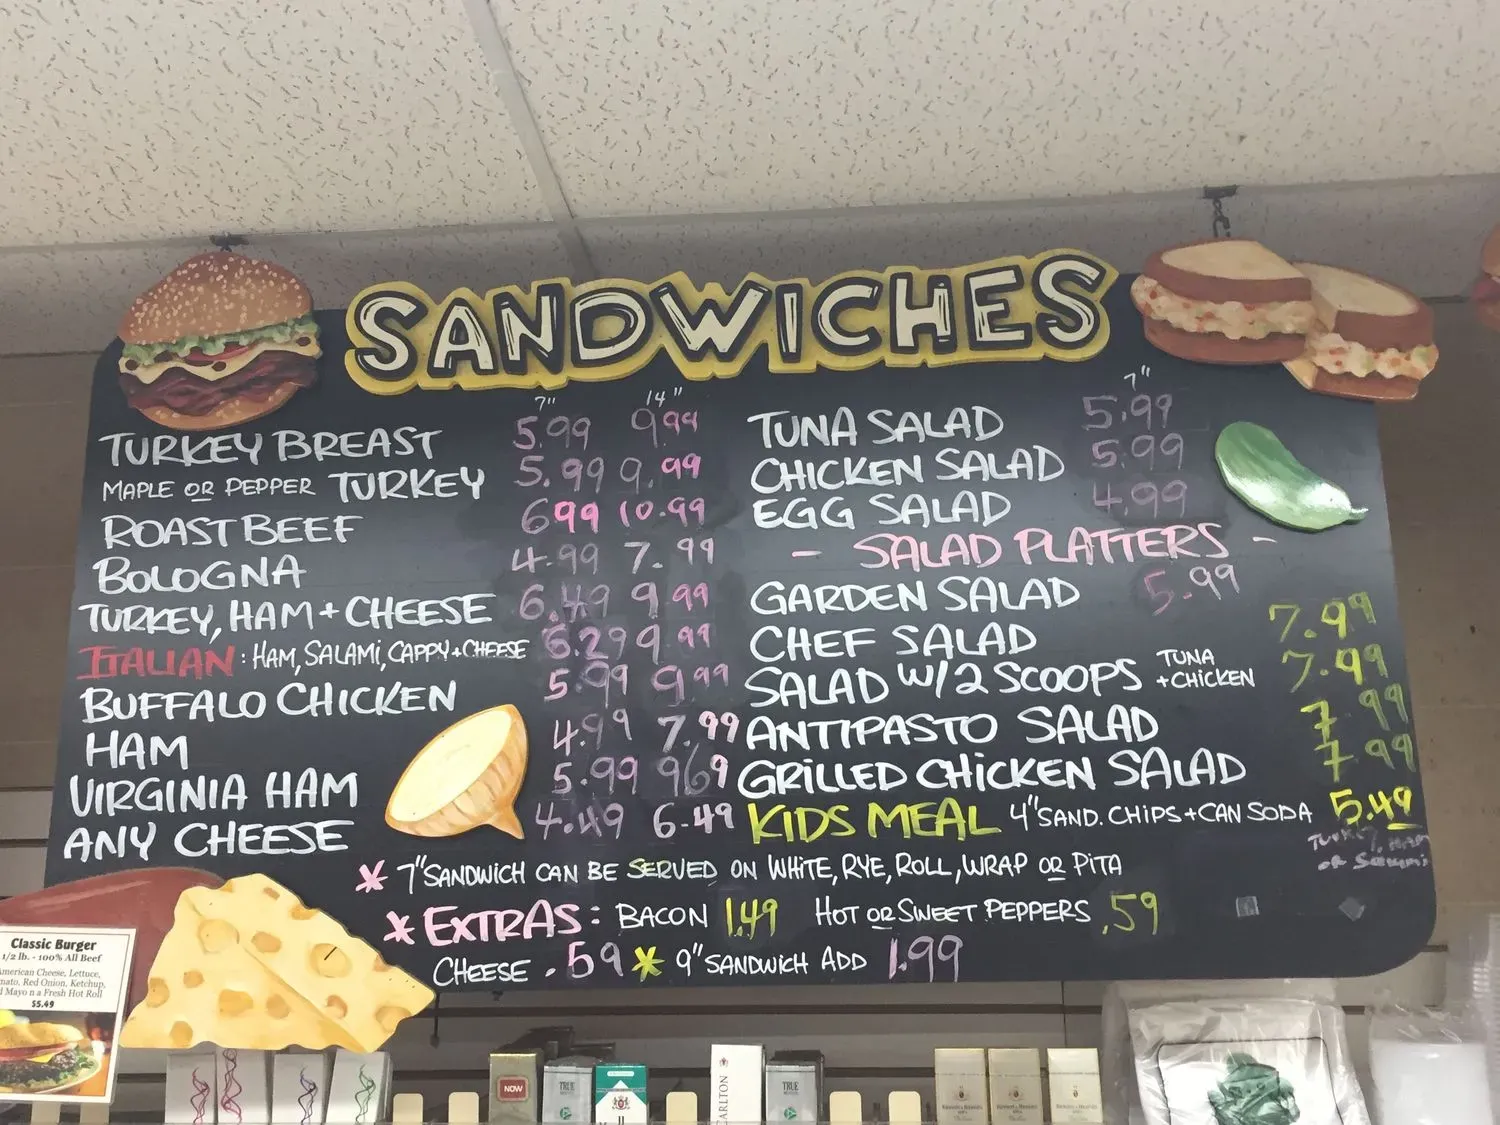 SANDWICHES
7" 14"
TURKEY BREAST 5.99 9.99
MAPLE OR PEPPER TURKEY 5.99 9.99
ROAST BEEF 6.99 10.99
BOLOGNA 4.99 7.99
TURKEY, HAM + CHEESE 6.49 9.99
ITALIAN: HAM, SALAMI, CAPPY + CHEESE 6.29 9.99
BUFFALO CHICKEN 5.99 9.99
HAM 4.99 7.99
VIRGINIA HAM 5.99 969
ANY CHEESE 4.49 6.49
7"
TUNA SALAD 5.99
CHICKEN SALAD 5.99
EGG SALAD 4.99
- SALAD PLATTERS -
GARDEN SALAD 5.99
CHEF SALAD 7.99
SALAD W/2 SCOOPS TUNA + CHICKEN 7.99
ANTIPASTO SALAD 7.99
GRILLED CHICKEN SALAD 7.99
KIDS MEAL 4" SAND. CHIPS + CAN SODA 5.49
TURKEY, HAM
OR Salami
* 7" SANDWICH CAN BE SERVED ON WHITE, RYE, ROLL, WRAP OR PITA
* EXTRAS: BACON 1.49 HOT OR SWEET PEPPERS .59
CHEESE .59 * 9" SANDWICH ADD 1.99
Classic Burger
1/2 lb. - 100% All Beef
American Cheese, Lettuce,
Red Onion, Ketchup,
Mayo n a Fresh Hot Roll
$5.49
NOW
TRUE
CARLTON
TRUE